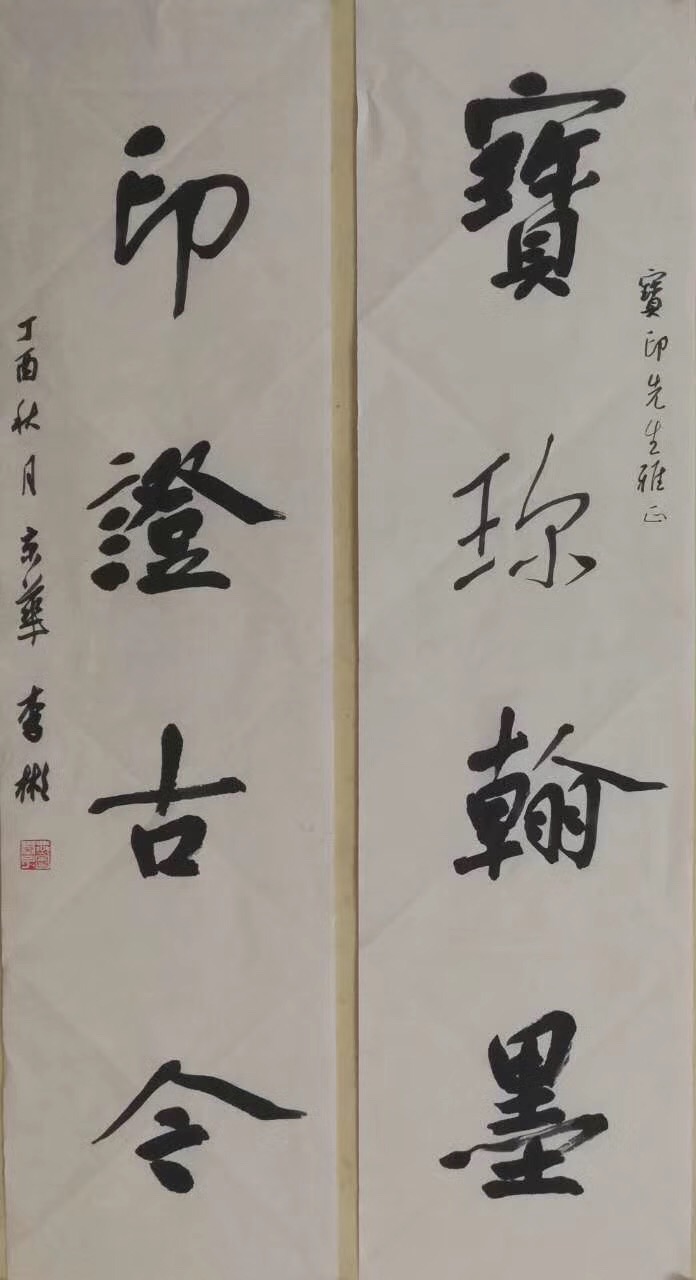 寶印先生雅正
寶珎翰墨
印證古今
丁酉秋月京華李彬